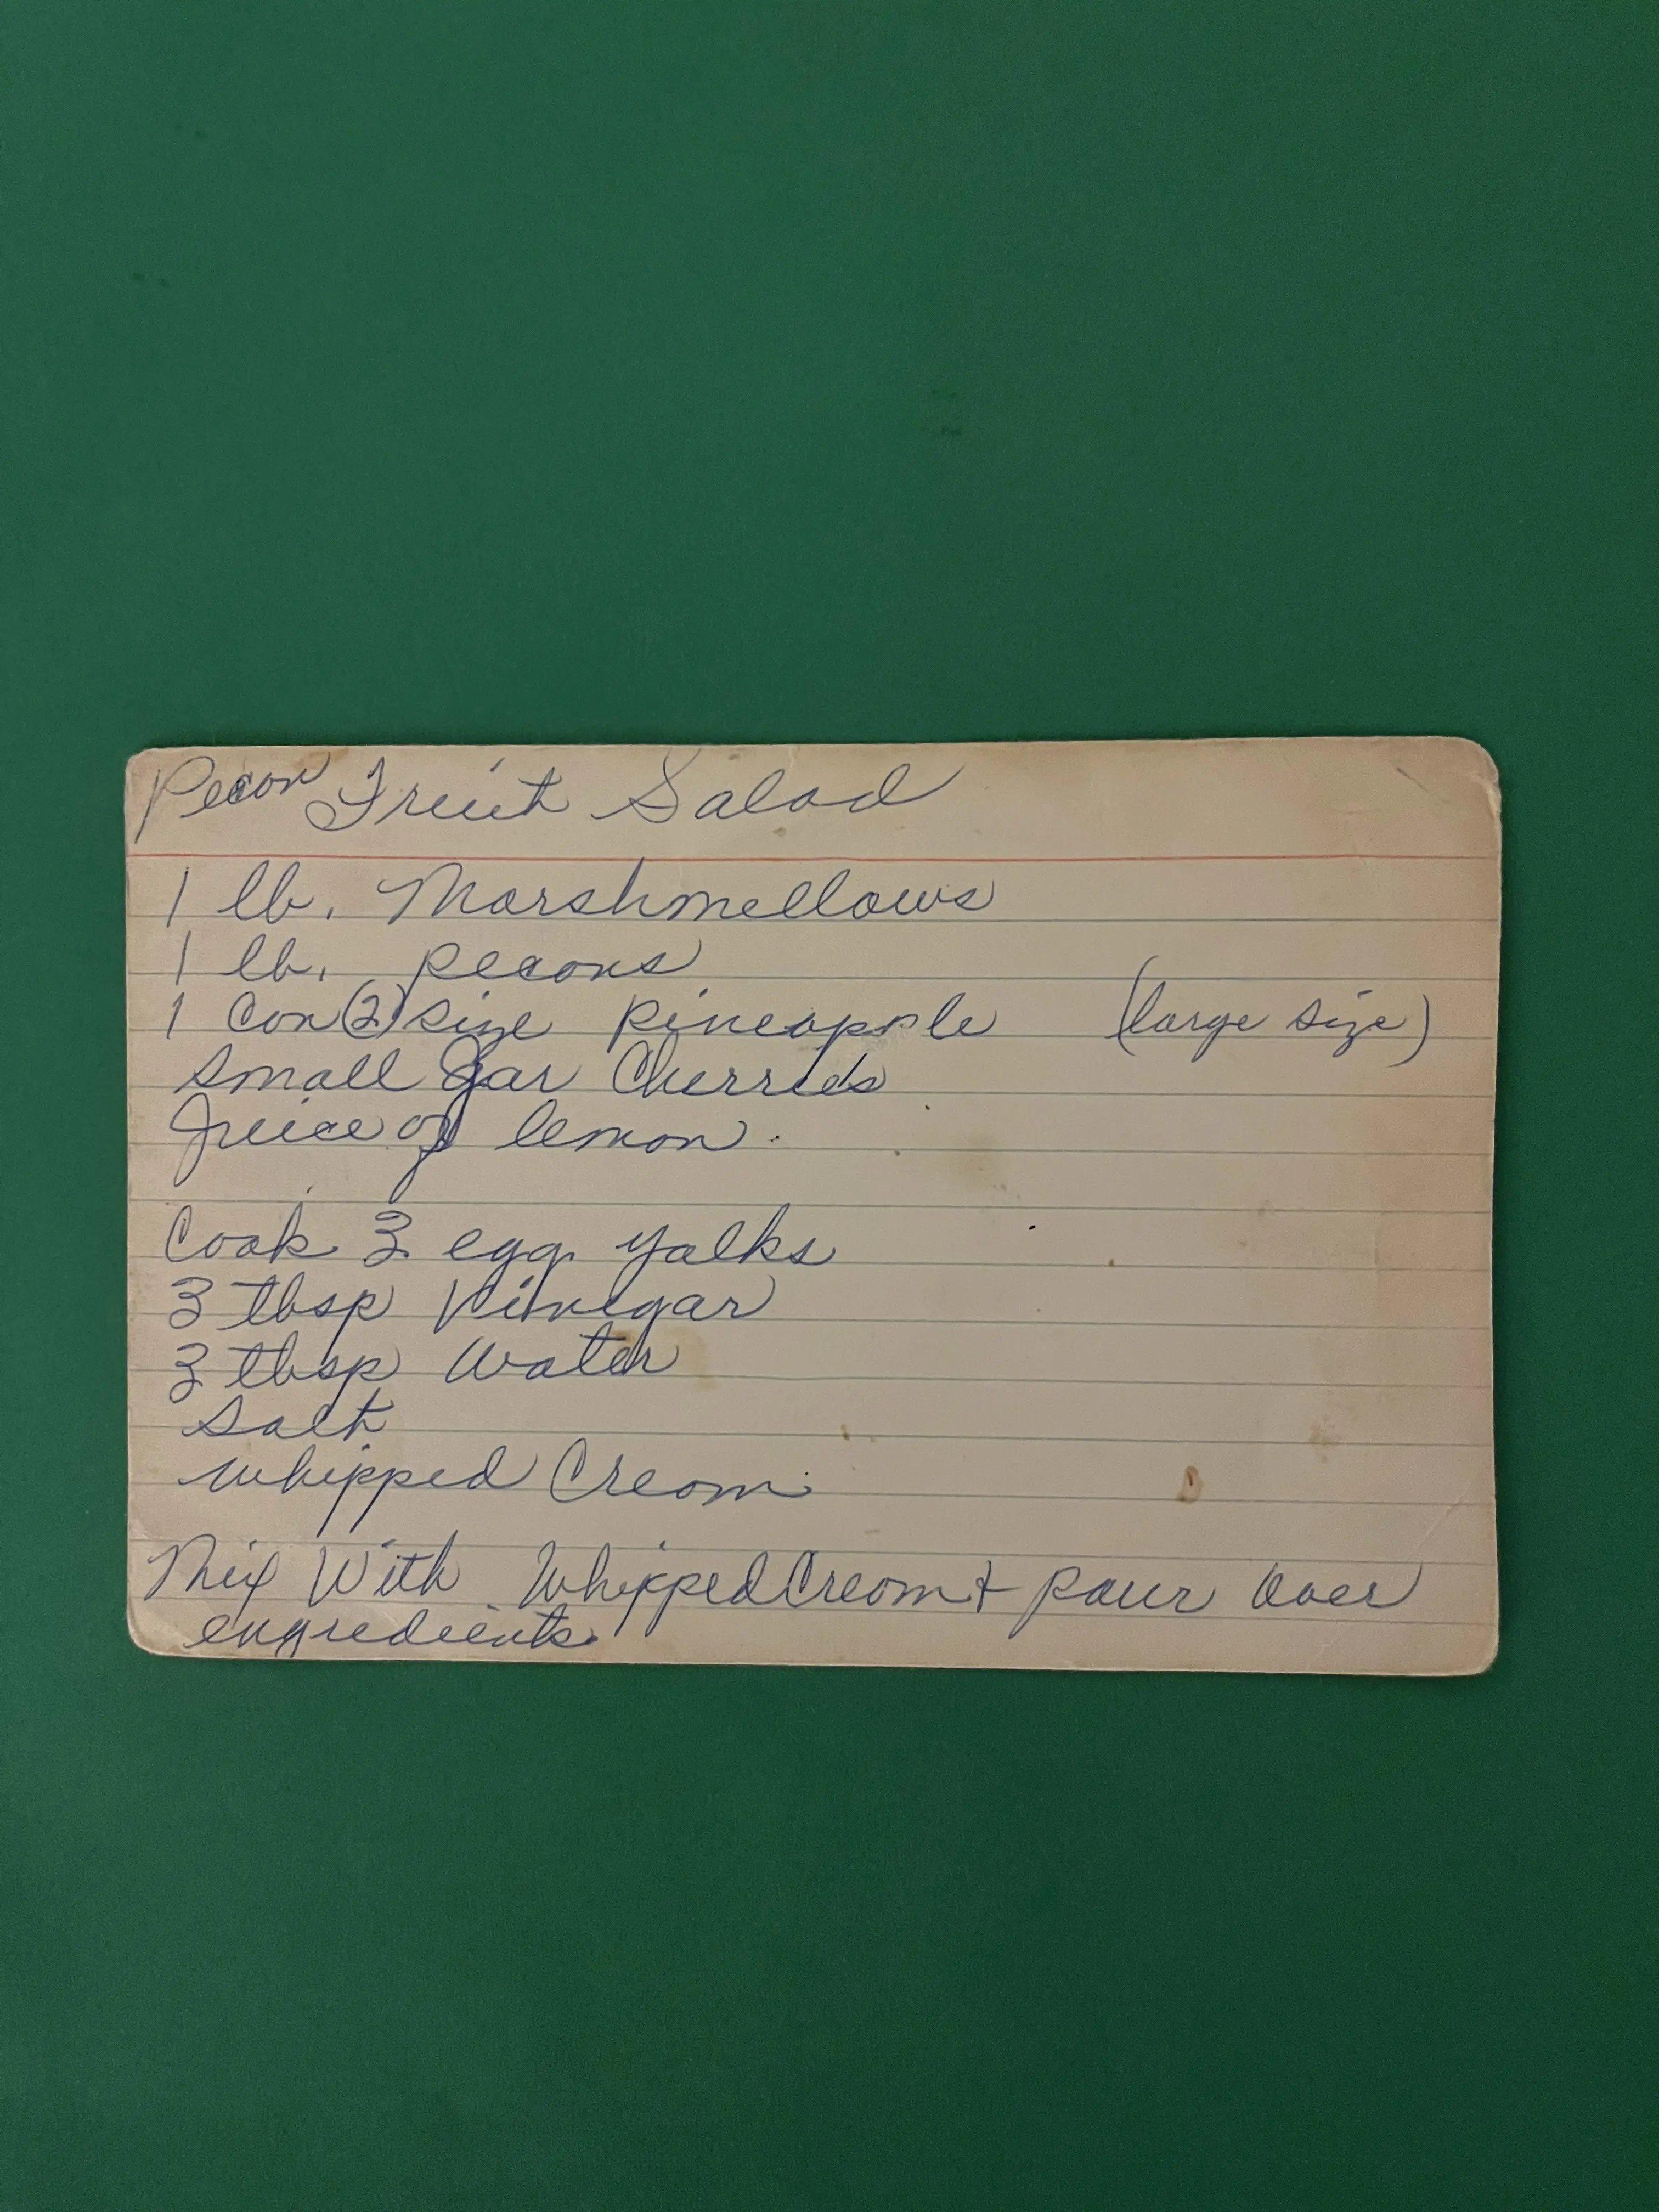 Pecan Fruit Salad
1 lb. Marshmellows
1 lb. pecans
1 Can (2) size pineapple (large size)
Small Jar Cherries
Juice of lemon.
Cook 3 egg yalks
3 tbsp Vinegar
3 tbsp Water
Salt
Whipped Cream
Mix With Whipped Cream + pour over
engredients.